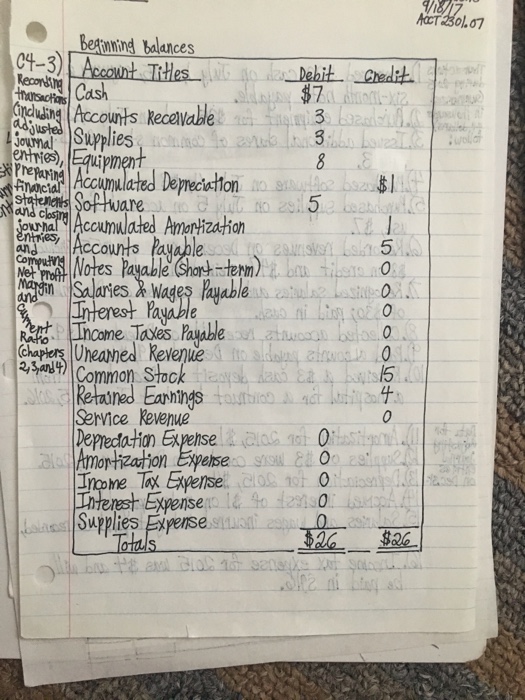 9/18/17
ACCT 2301.07
Beginning Balances
C4-3)
Recording
transactions
(including
adjusted
journal
entries),
Preparing
financial
statements
and closing
journal
entries,
and
Computing
Net Profit
Margin
and
Current
Ratio
(Chapters
2, 3, and 4)
Account Titles Debit Credit
Cash $7
Accounts Receivable 3
Supplies 3
Equipment 8
Accumulated Depreciation $1
Software 5
Accumulated Amortization 1
Accounts Payable 5
Notes Payable (Short-term) 0
Salaries & Wages Payable 0
Interest Payable 0
Income Taxes Payable 0
Unearned Revenue 0
Common Stock 15
Retained Earnings 4
Service Revenue 0
Depreciation Expense 0
Amortization Expense 0
Income Tax Expense 0
Interest Expense 0
Supplies Expense 0
Totals $26 $26